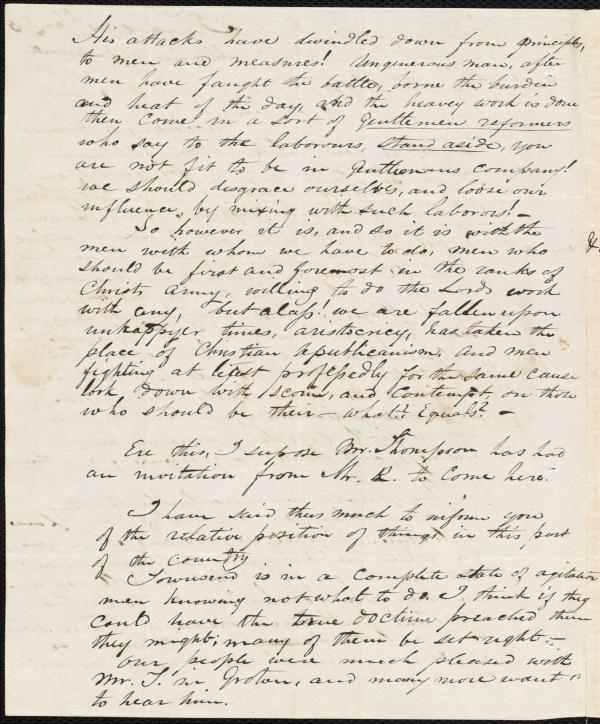 His attacks have dwindled down from principles,
to men and measures! Ungenerous man, after
men have faught the battle, borne the burden
and heat of the day, and the heavey work is done
then come in a sort of Gentlemen reformers
who say to the labourers, stand aside, you
are not fit to be in Gentlemans company!
we should disgrace ourselves, and loose our
influence, by mixing with such laborors! -
So however it is, and so it is with the
men with whom we have to do, men who
should be first and foremost in the ranks of
Christs army, willing to do the Lords work
with any, but alass! we are fallen upon
unhappyer times, aristocricy, has taken the
place of Christian republicanism, and men
fighting at least professedly for the same cause
look down with scorn, and contempt, on those
who should be their - what!? Equals? -
Ere this, I supose Mr. Thompson has had
an invitation from Mr. R. to come here.
I have said thus much to inform you
of the relative position of things in this part
of the country
Townsend is in a complete state of agitation
men knowing not what to do. I think if they
could have the true doctrine preached there
they might; many of them be set right; -
Our people were much pleased with
Mr. T. in Groton, and many more want
to hear him.